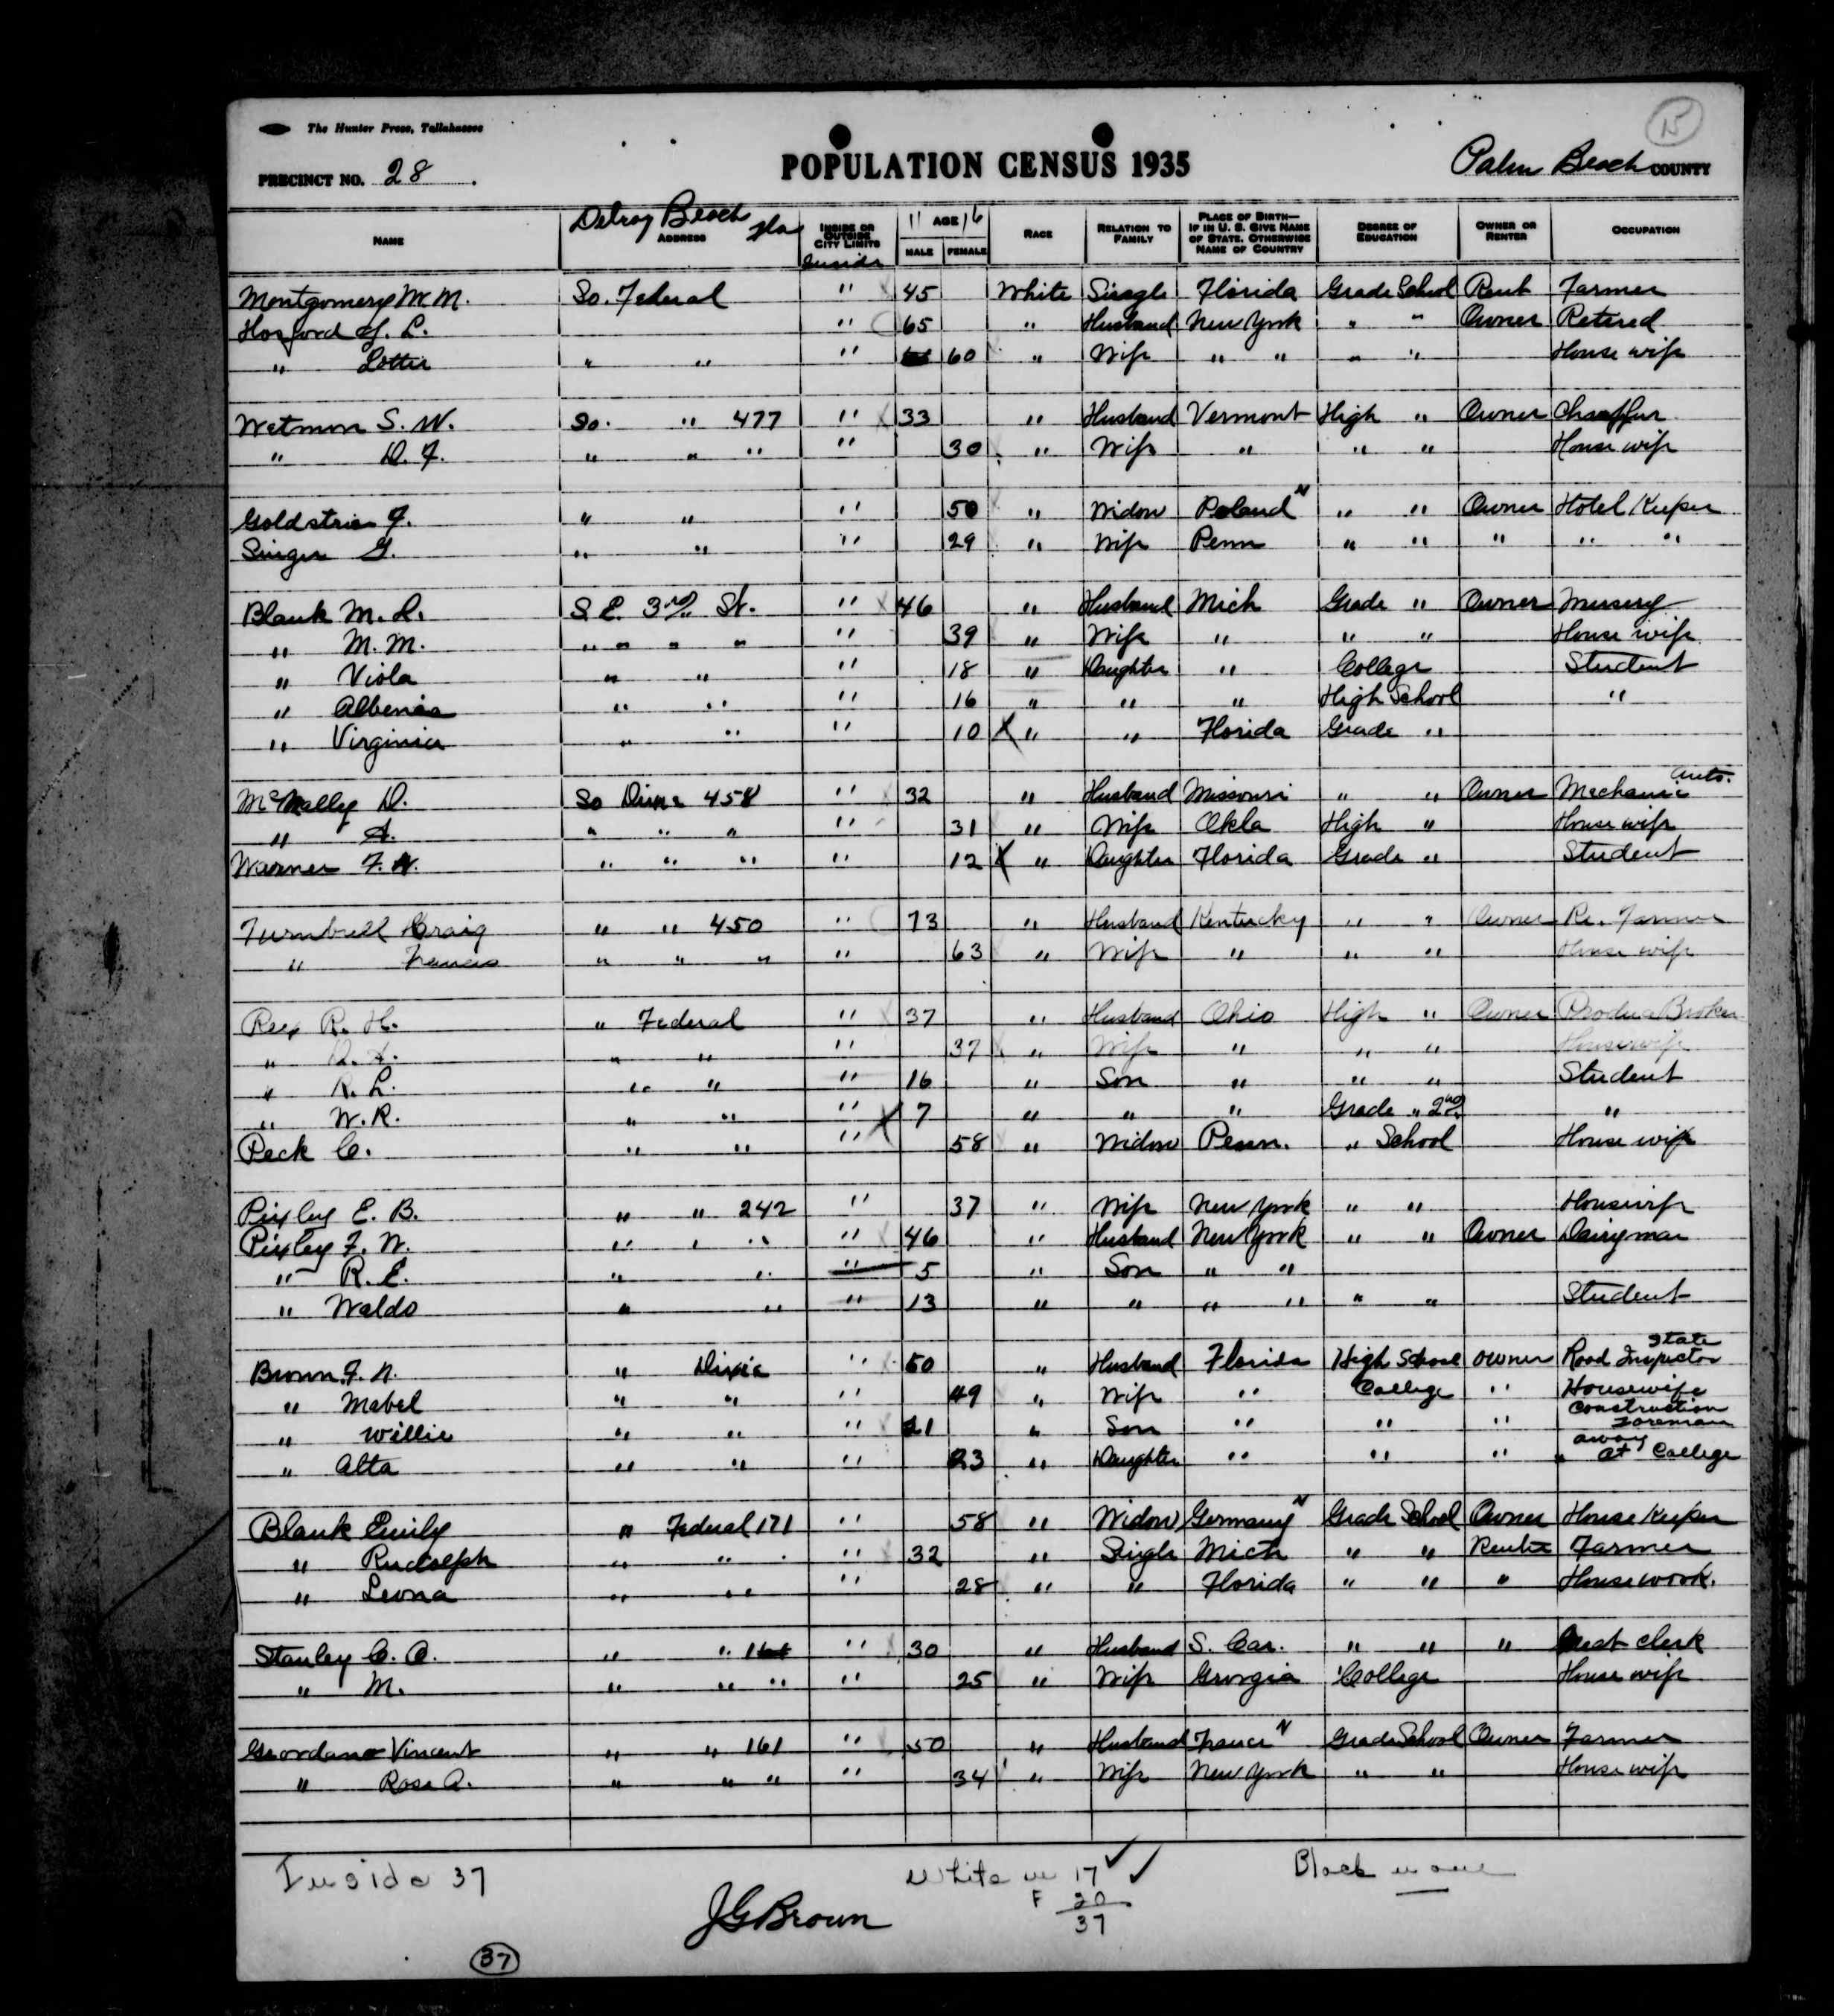 The Hunter Press, Tallahassee
15
PRECINCT NO. 28
POPULATION CENSUS 1935
Palm Beach COUNTY
NAME Delray Beach Fla ADDRESS INSIDE OR OUTSIDE CITY LIMITS Inside 11 AGE 16 MALE FEMALE RACE RELATION TO FAMILY PLACE OF BIRTH— IF IN U. S. GIVE NAME OF STATE. OTHERWISE NAME OF COUNTRY DEGREE OF EDUCATION OWNER OR RENTER OCCUPATION
Montgomery W. M. So. Federal " 45 White Single Florida Grade School Rent Farmer
Hosford L. " 65 " Husband New York " " Owner Retired
" Lottie " " " 60 " Wife " " " " House wife
Wetmore S. W. So. " 477 " 33 " Husband Vermont High " Owner Chauffur
" D. F. " " " " 30 " Wife " " " House wife
Goldstrie F. " " " 50 " Widow Poland N " " Owner Hotel Keeper
Singer G. " " " 29 " Wife Penn " " " " "
Blank M. L. S. E. 3rd St. " 46 " Husband Mich Grade " Owner Nursery
" M. M. " " " " " 39 " Wife " " " House wife
" Viola " " " 18 " Daughter " College Student
" Albenia " " " 16 " " " High School "
" Virginia " " " 10 X " " Florida Grade "
McNally D. So Dixie 458 " 32 " Husband Missouri " " Owner Mechanic auto.
" A. " " " " 31 " Wife Okla High " House wife
Warner F. N. " " " " 12 X " Daughter Florida Grade " Student
Turnbull Craig " " 450 " 73 " Husband Kentucky " " Owner Re. Farmer
" Francis " " " " 63 " Wife " " " House wife
R. H. " Federal " 37 " Husband Ohio High " Owner Produce Broker
" " " " 37 " Wife " " " Housewife
" R. L. " " " 16 " Son " " " Student
" W. R. " " " X 7 " " " Grade " 2nd "
Peck C. " " " 58 " Widow Penn. " School House wife
Pixley E. B. " " 242 " 37 " Wife New York " " Housewife
Pixley F. W. " " " " 46 " Husband New York " " Owner Dairyman
" R. E. " " " 5 " Son " "
" Waldo " " " 13 " " " " " " Student
Brown F. N. " Dixie " 50 " Husband Florida High School owner State Road Inspector
" Mabel " " " 49 " Wife " College " Housewife
" Willie " " " 21 " Son " " " Construction Foreman
" Alta " " " 23 " Daughter " " " away at College
Blank Emily " Federal 171 " 58 " Widow Germany N Grade School Owner House Keeper
" Rudolph " " " 32 " Single Mich " " Renter Farmer
" Leona " " " 28 " " Florida " " " Housework.
Stanley C. C. " " " 30 " Husband S. Car. " " " clerk
" M. " " " " 25 " Wife Georgia College House wife
Geordano Vincent " " 161 " 50 " Husband France N Grade School Owner Farmer
" Rose A. " " " " 34 " Wife New York " " House wife
Inside 37 White m 17 Black none
F 20
37
J G Brown
37